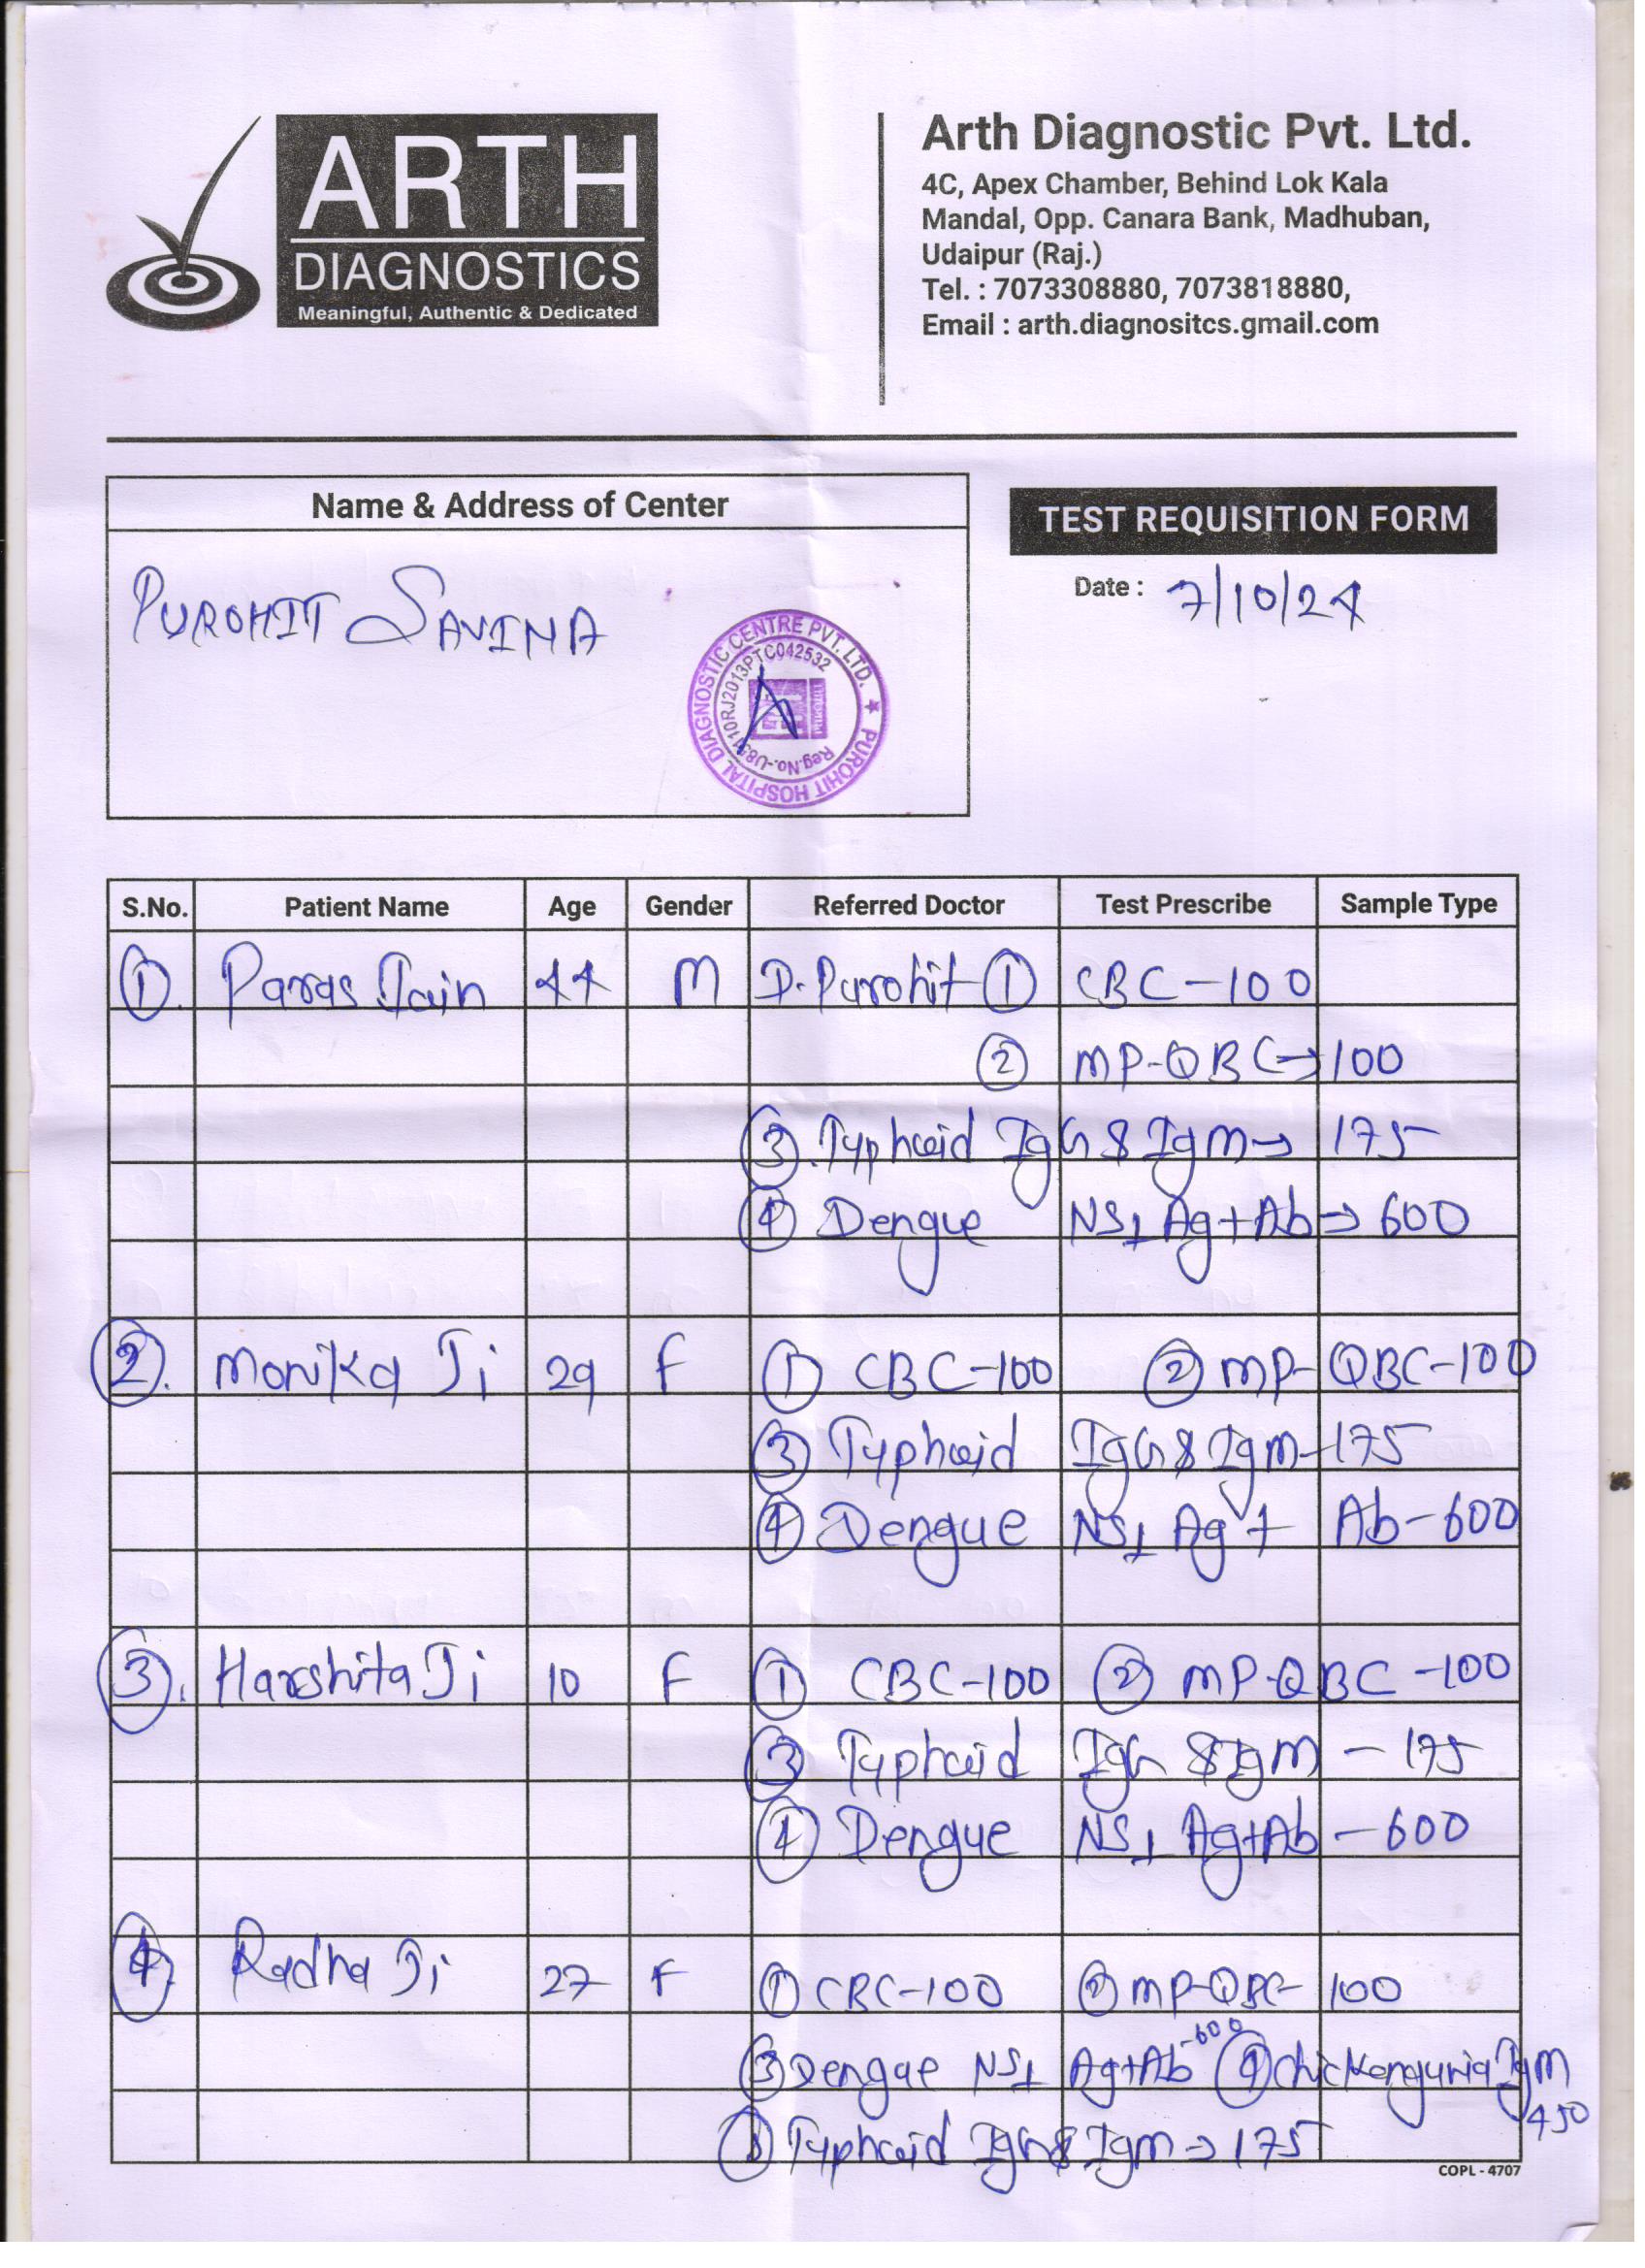 ARTH
DIAGNOSTICS
Meaningful, Authentic & Dedicated
Arth Diagnostic Pvt. Ltd.
4C, Apex Chamber, Behind Lok Kala
Mandal, Opp. Canara Bank, Madhuban,
Udaipur (Raj.)
Tel. : 7073308880, 7073818880,
Email : arth.diagnositcs.gmail.com
Name & Address of Center
PUROHIT SAVINA
PUROHIT HOSPITAL DIAGNOSTIC CENTRE PVT. LTD. ★
TEST REQUISITION FORM
Date : 7/10/24
S.No. Patient Name Age Gender Referred Doctor Test Prescribe Sample Type
① Paras Jain 44 M D. Purohit ① CBC-100
② MP-QBC→100
③ Typhoid IgG & IgM→ 175
④ Dengue NS1 Ag+Ab→ 600
② Monika Ji 29 F ① CBC-100 ② MP-QBC-100
③ Typhoid IgG & IgM-175
④ Dengue NS1 Ag+ Ab-600
③ Harshita Ji 10 F ① CBC-100 ② MP-QBC-100
③ Typhoid IgG & IgM - 175
④ Dengue NS1 Ag+Ab-600
④ Radha Ji 27 F ① CBC-100 ② MP-QBC- 100
③ Dengue NS1 Ag+Ab -600 ④ Chickenguria IgM 450
⑤ Typhoid IgG & IgM→175
COPL - 4707